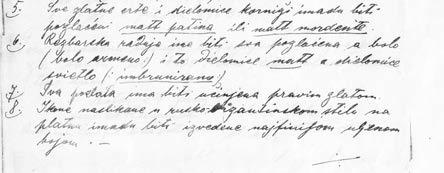 5. Sve glatne crte i dielomice korniži imadu biti
pozlaćeni matt patina ili matt mordente.
6. Rezbarska radnja ima biti sva pozlaćena a bolo
(bolo armeno) i to dielomice matt a dielomice
svietlo (imbrunirano)
7. Sva pozlata ima biti učinjena pravim zlatom.
8. Ikone naslikane u rusko-bizantinskom stilu na
platnu imadu biti izvedene najfinijom uljenom
bojom. —